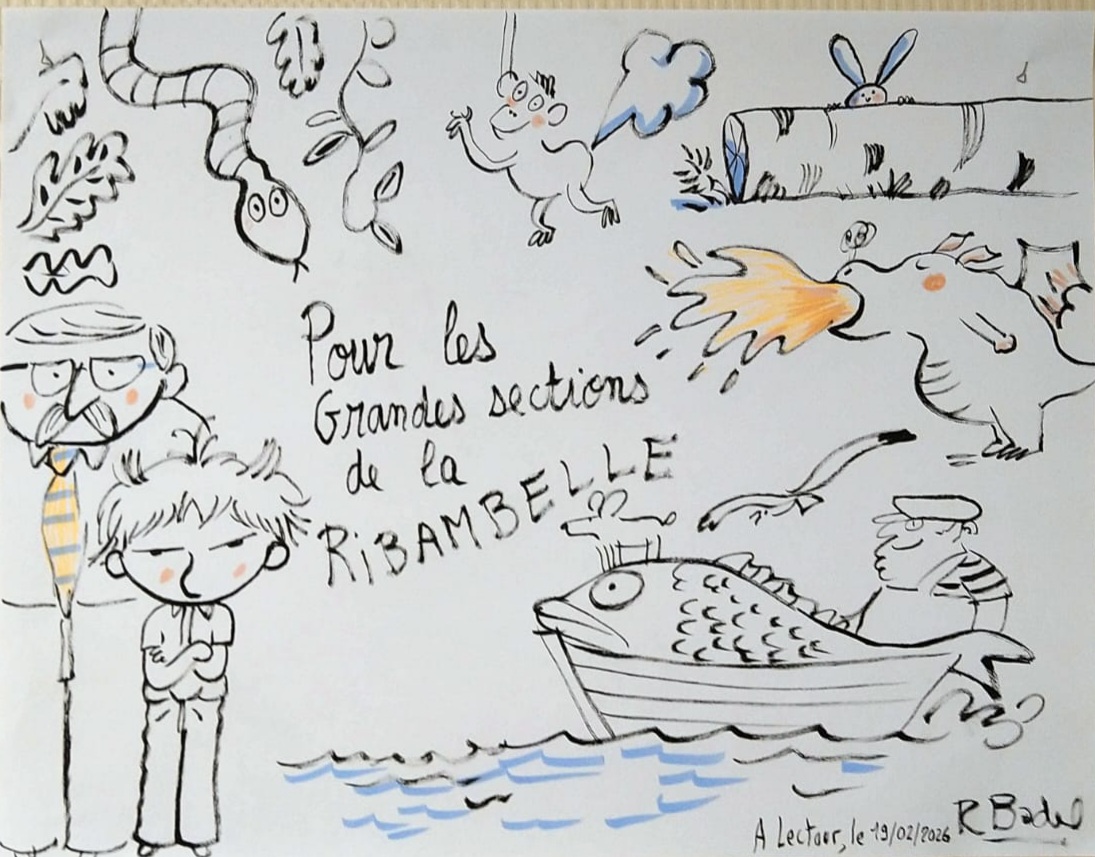 Pour les
Grandes sections
de la
RiBAMBELLE
A Lectour, le 19/02/2026
R Badel